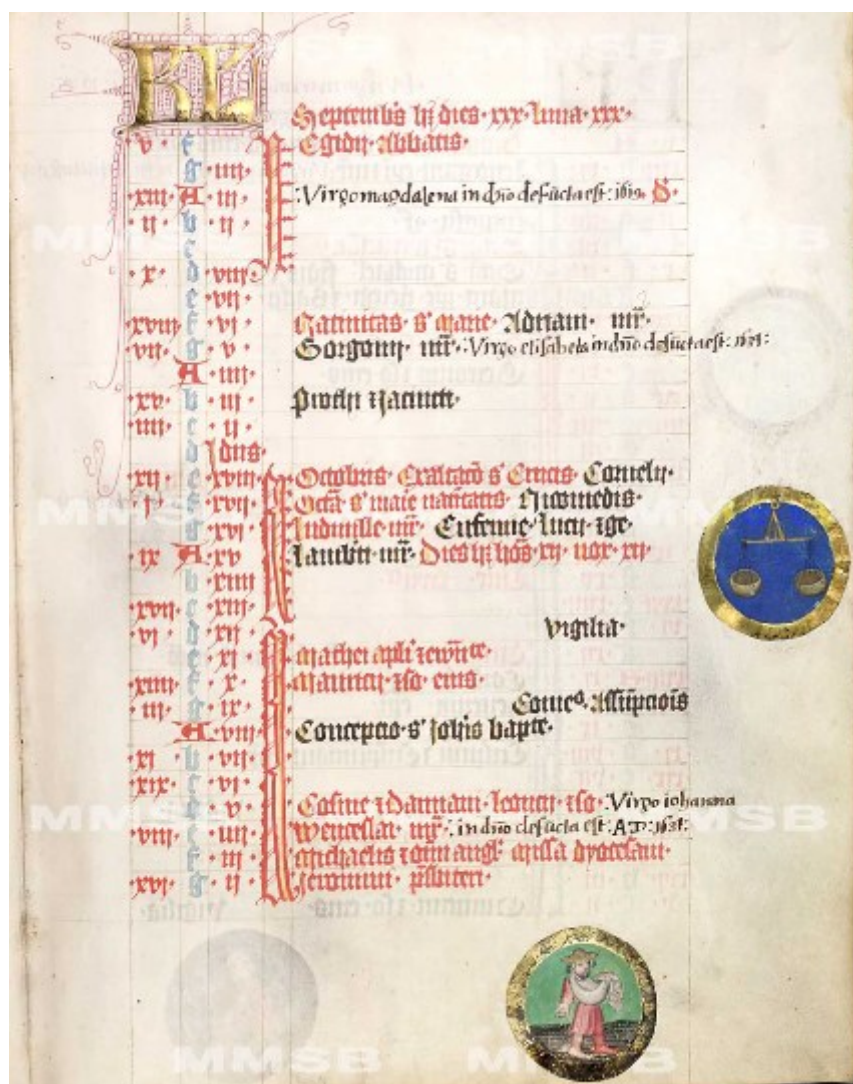 KL
Septembris hz dies xxx luna xxx
v f Egidij Abbatis
g iiij
xiii A iii Virgo magdalena in dno defucta est: 1619. d.
ii b ii
c
x d viii
e vii
xviii f vi Nativitas s marie Adriani mr
vii g v Gorgonij mr Virgo elisabeta in dno defucta est: 1631:
A iiii
xv b iii Prothi et Jacincti
iiii c ii
d Idus
xii e xviii Octobris Exaltaco s Crucis Cornelij
i f xvii Octa s marie nativitatis Nicomedis
g xvi Ludmille mr Eufemie Lucij et ge
ix A xv Lamberti mr Dies hz hos xij nox xij
b xiiii
xvii c xiii
vi d xii Vigilia
e xi Mathei apli et ewnte
xiiii f x Mauricij et so eius
iii g ix Come Assumpcionis
A viii Concepcio s johis bapte
xi b vii
xix c vi
d v Cosme et Damiani Leoncij et so Virgo iohanna
viii e iiii Wenceslai mr in dno defucta est: AD: 1631:
f iii Michaelis et omn angl missa dyocesani
xvi g ii Jeronimi prsbiteri
MMSB